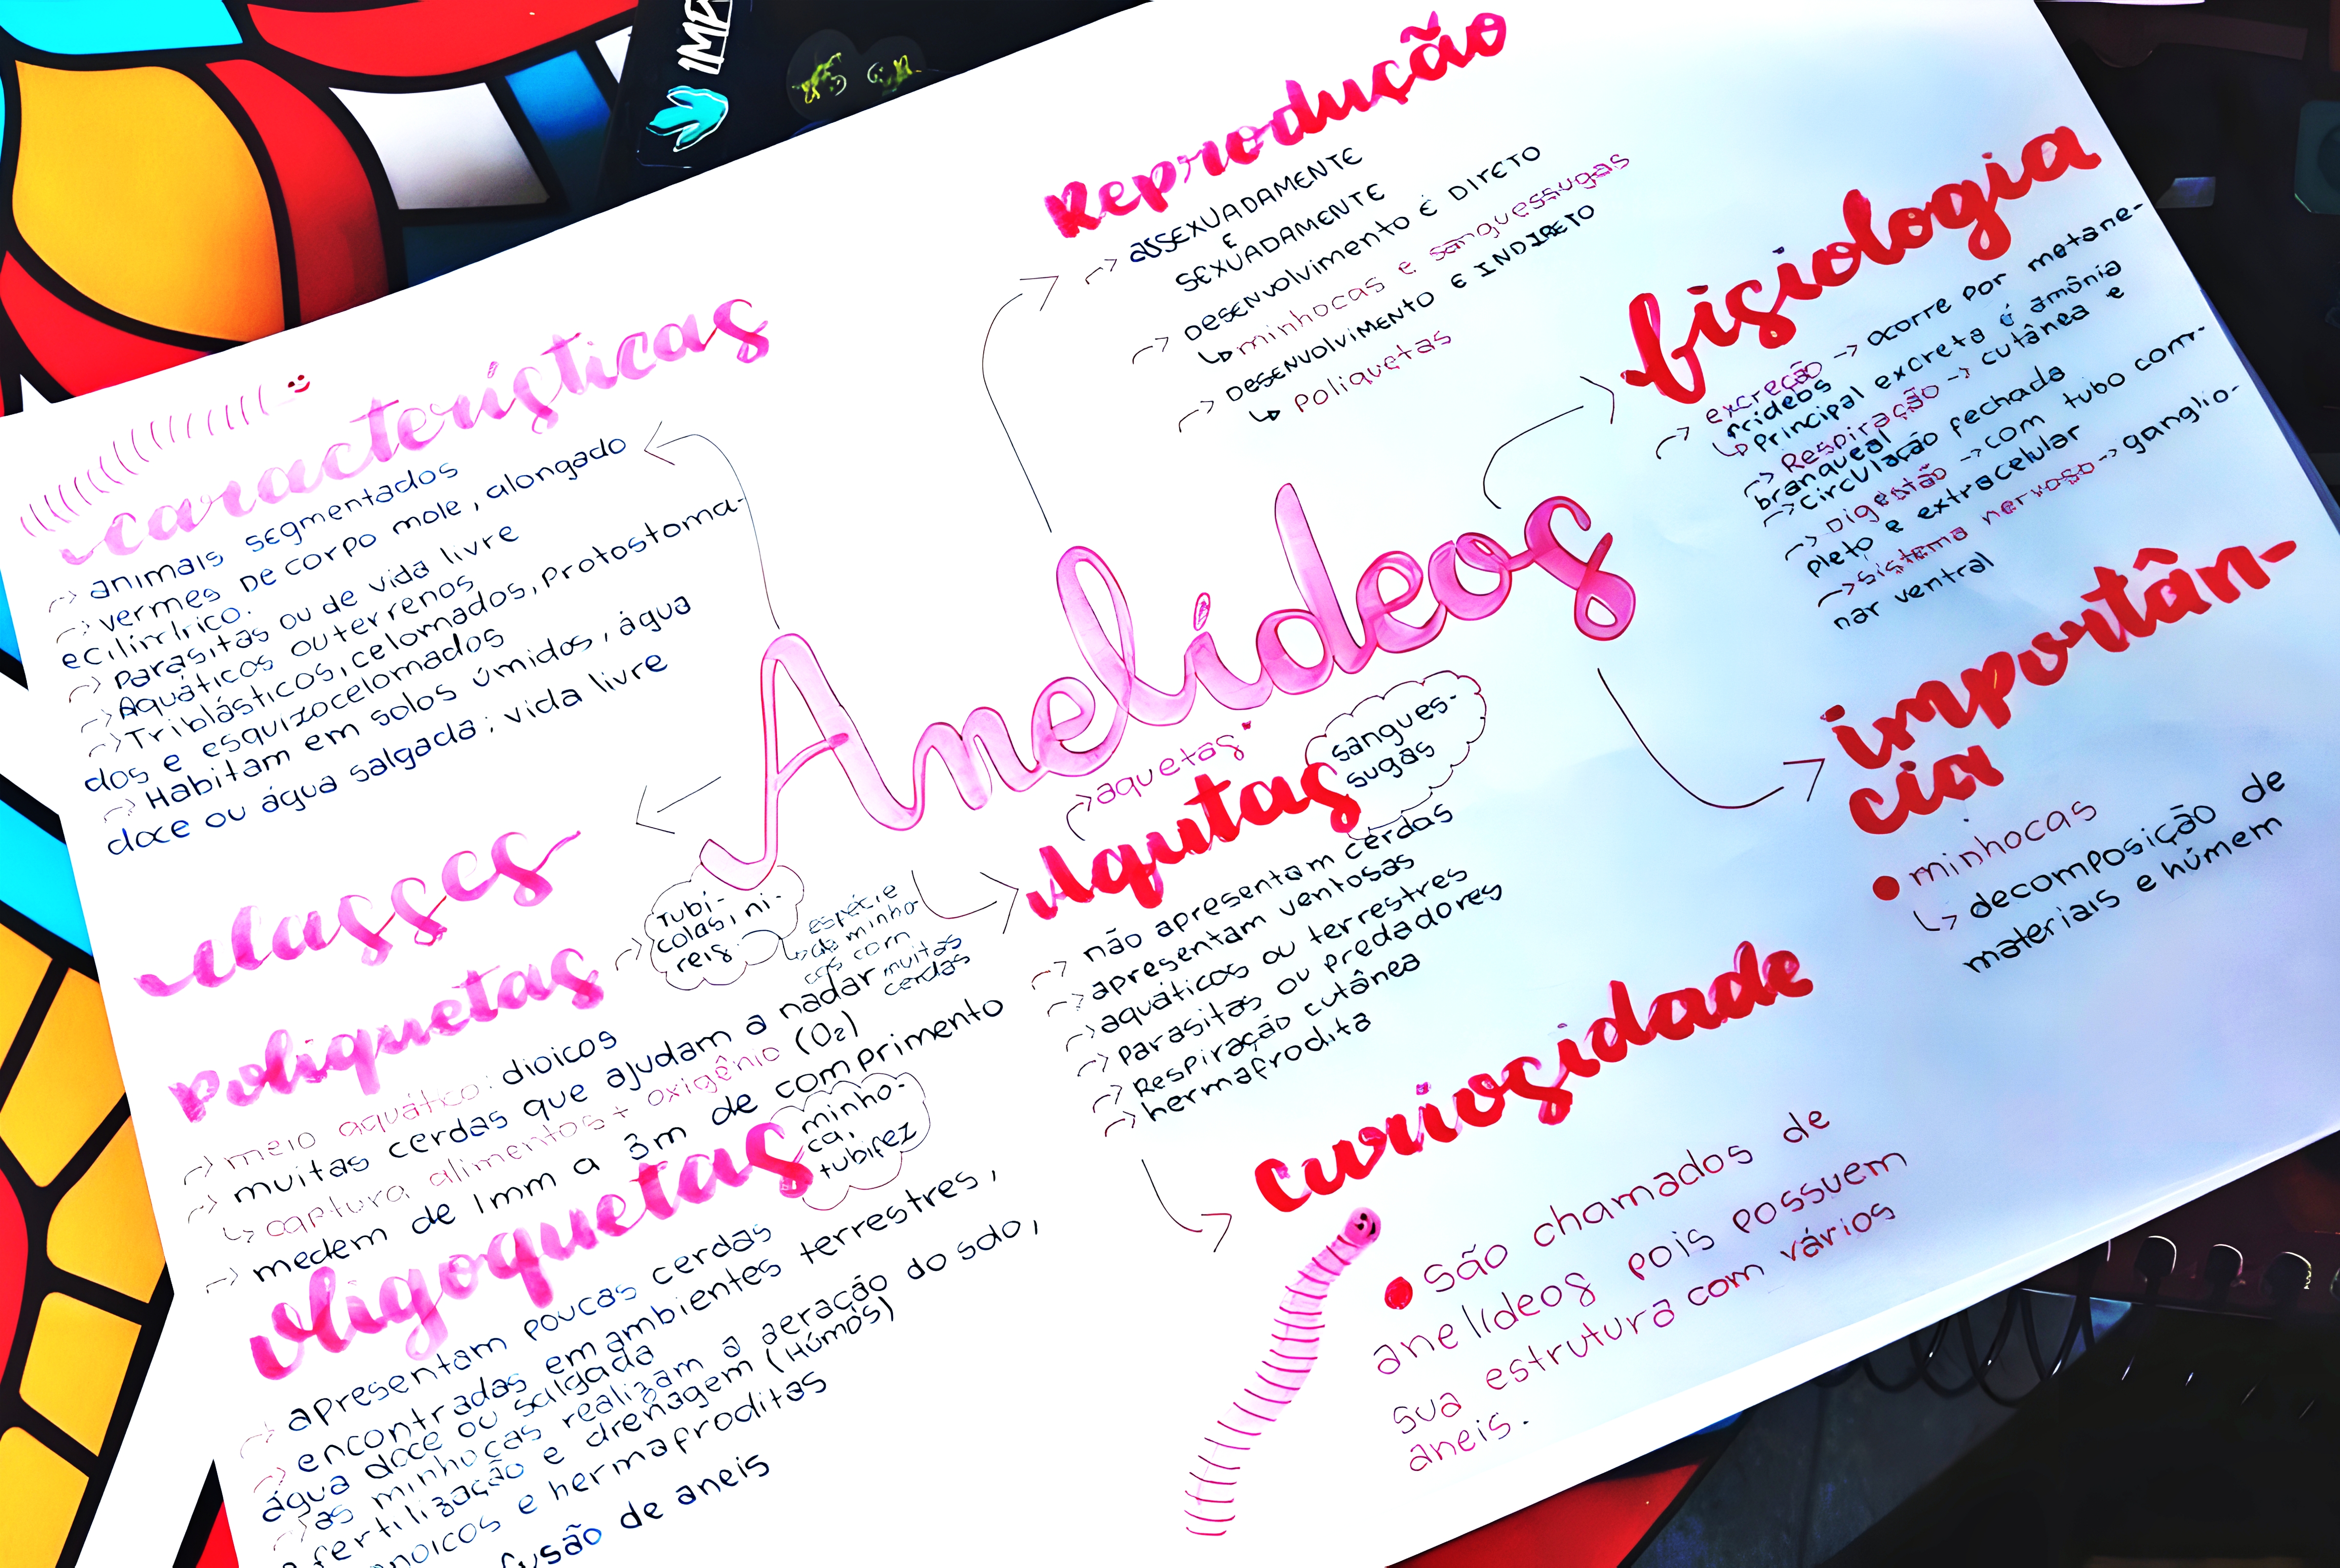 Anelídeos
características
-> animais segmentados
-> vermes de corpo mole, alongado
e cilíndrico.
-> Parasitas ou de vida livre
-> Aquáticos ou terrenos
-> Triblásticos, celomados, protostoma-
dos e esquizocelomados
-> Habitam em solos úmidos, água
doce ou água salgada; vida livre
Reprodução
-> assexuadamente
e
sexuadamente
-> desenvolvimento é direto
↳ minhocas e sanguessugas
-> desenvolvimento é indireto
↳ poliquetas
fisiologia
-> excreção -> ocorre por metane-
frídeos
↳ Principal excreta é amônia
-> Respiração -> cutânea e
branqueal
-> circulação fechada
-> Digestão -> com tubo com-
pleto e extracelular
-> sistema nervoso -> ganglio-
nar ventral
importân-
cia
• minhocas
↳ decomposição de
materiais e húmem
classes
poliquetas
-> Tubí-
colas, ni-
reis
↳ espécie
de minho-
cas com
muitas
cerdas
-> meio aquático: dioicos
-> muitas cerdas que ajudam a nadar
↳ captura alimentos + oxigênio (O2)
-> medem de 1mm a 3m de comprimento
oligoquetas
minho-
ca,
tubifez
-> apresentam poucas cerdas
-> encontradas em ambientes terrestres,
água doce ou salgada
-> as minhocas realizam a aeração do solo,
fertilização e drenagem (Húmós)
e hermafroditas
fusão de aneis
-> aquetas*
Aqutas
sangues-
sugas
-> não apresentam cerdas
-> apresentam ventosas
-> aquáticos ou terrestres
-> parasitas ou predadores
-> Respiração cutânea
-> hermafrodita
curiosidade
• são chamados de
anelídeos pois possuem
sua estrutura com vários
aneis.